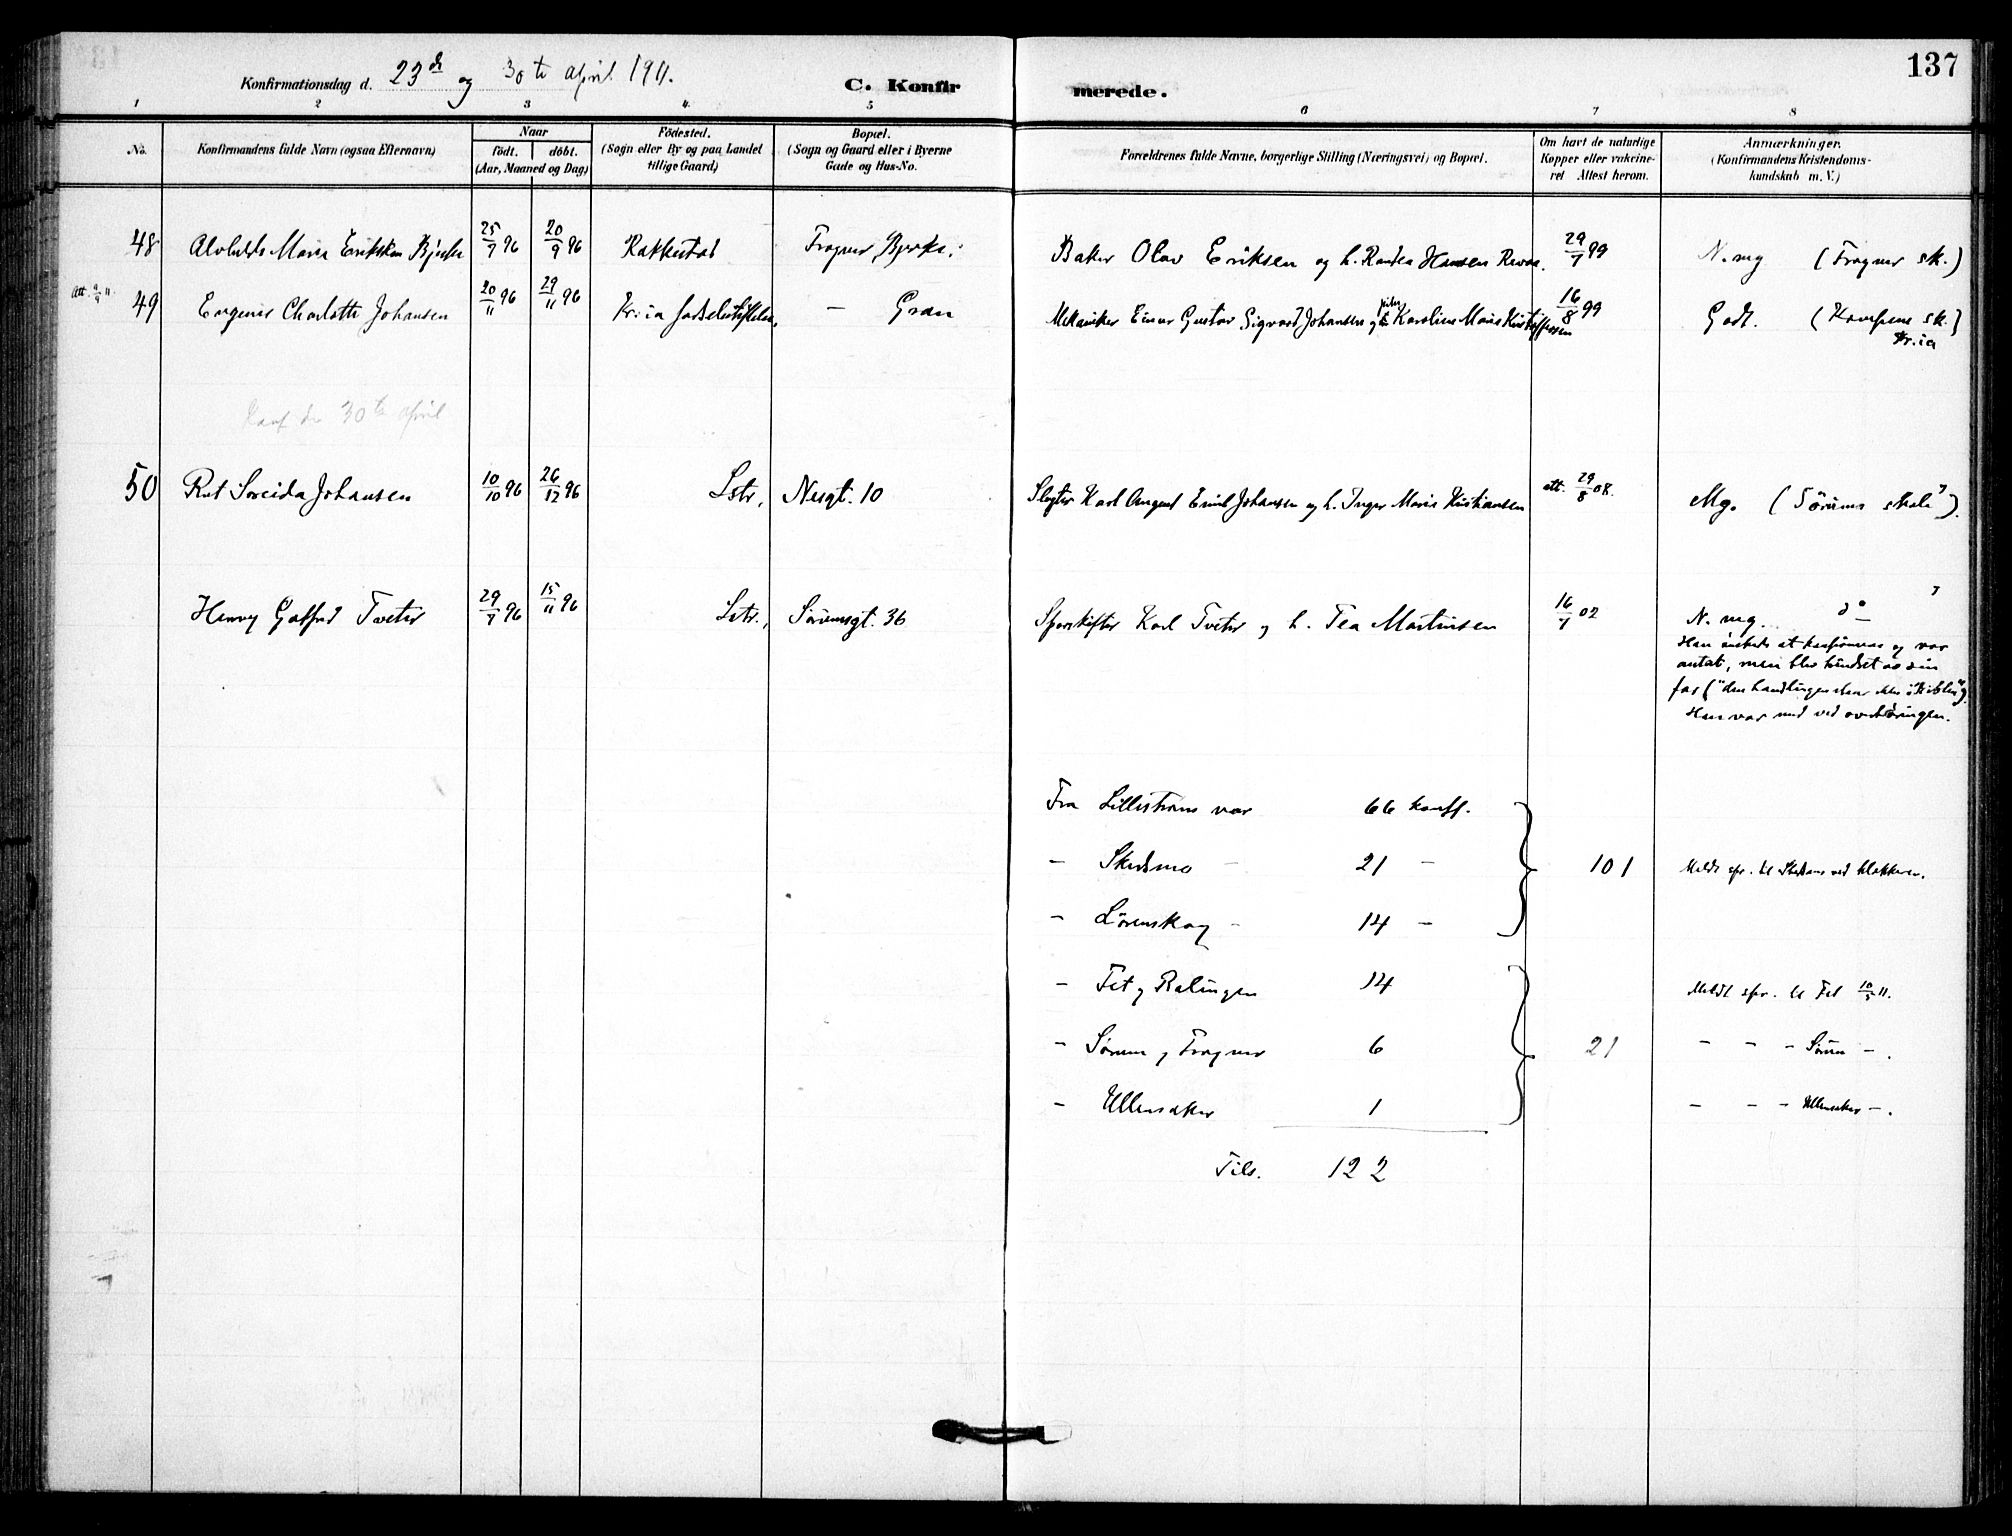 137
Konfirmationsdag d. 23de og 30te april 1911.
C. Konfirmerede.
1 2 3 4 5 6 7 8
No.
Konfirmandens fulde Navn (ogsaa Efternavn)
Naar
födt. döbt.
(Aar, Maaned og Dag)
Födested.
(Sogn eller By og paa Landet
tillige Gaard)
Bopæl.
(Sogn og Gaard eller i Byerne
Gade og Hus-No.
Forældrenes fulde Navne, borgerlige Stilling (Næringsvei) og Bopæl.
Om havt de naturlige
Kopper eller vakcine-
ret Attest herom.
Anmærkninger.
(Konfirmandens Kristendoms-
kundskab m. V.)
48 Maria Eriksen 25/7 96 20/9 96 Rakkestad Frogner, Baker Olav Eriksen og h. Hansen 29/7 99 N. mg (Frogner sk.)
Att. 9/9 11.
49 Eugenie Charlotte Johansen 20/11 96 29/11 96 Kr.ia - Gran Mekaniker Einar Gustav Sigvard Johansen og pike Karoline Marie Kristoffersen 16/8 99 Godt. (Kampens sk.)
Kr.ia
Konf den 30te april
50 Rut Johansen 10/10 96 26/12 96 Lstr., Nesgt. 10 Slagter Karl August Emil Johansen og h. Inger Marie Kristiansen att. 29/8 08. Mg. (Sörums skole)
Henry Gotfred Tveter 29/7 96 15/11 96 Lstr., Sörumsgt. 36 Sporskifter Karl Tveter og h. Tea Martinsen 16/7 02 N. mg. do
Han önskede at konfirmeres og var
antat, men blev hindret av sin
far ("den handlingen staar ikke i Bibelen").
Han var med ved overhöringen.
Fra Lilleström var 66 konff.
- Skedsmo - 21 - 101 Meldt spr. til Skedsmo ved klokkeren.
- Lörenskog - 14 -
- Fet og Rælingen 14 Meldt spr. til Fet 10/5 11.
- Sörum og Frogner 6 21 - - - Sörum - .
- Ullensaker 1 - - - Ullensaker - .
Tils. 122